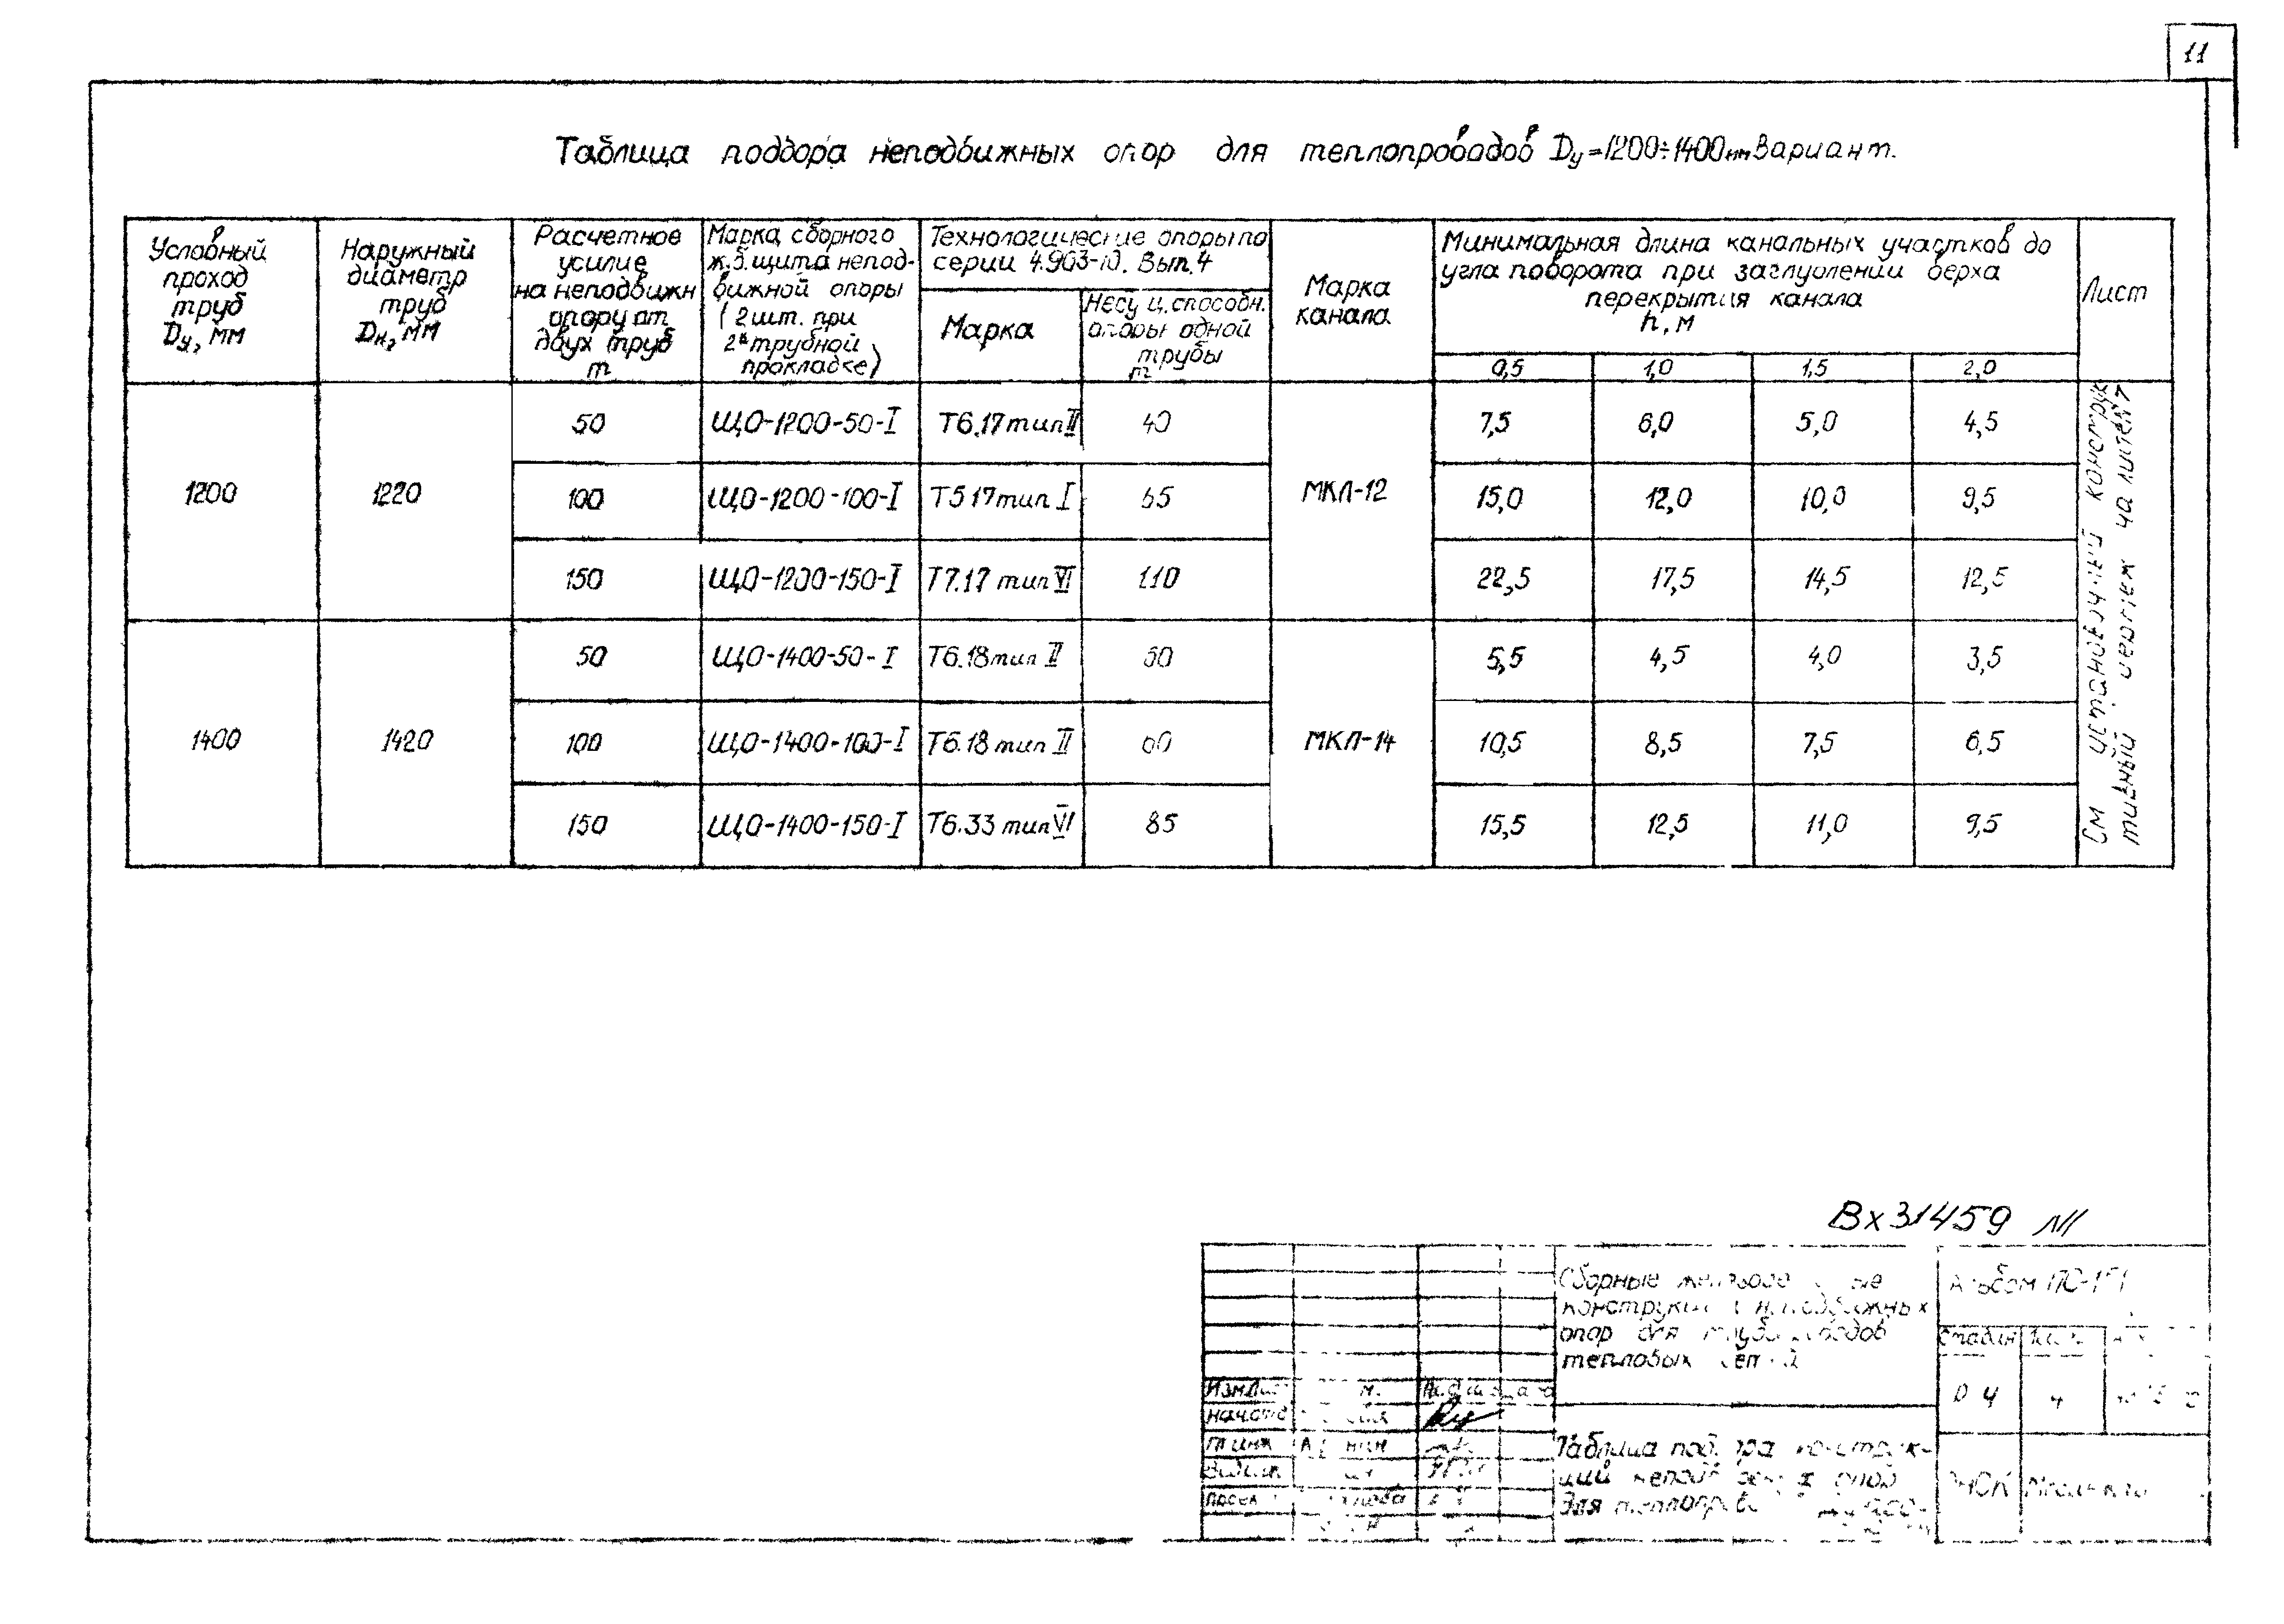 11
Таблица подбора неподвижных опор для теплопроводов Dу=1200÷1400мм Вариант.
Условный
проход
труб
Dу, мм
Наружный
диаметр
труб
Dн, мм
Расчетное
усилие
на неподвижн
опору от
двух труб
т
Марка сборного
ж.б. щита непод-
вижной опоры
(2 шт. при
2х трубной
прокладке)
Технологические опоры по
серии 4.903-10. Вып. 4
Марка
Несущ. способн.
опоры одной
трубы
т
Марка
канала
Минимальная длина канальных участков до
угла поворота при заглублении верха
перекрытия канала
h, м
0,5 1,0 1,5 2,0
Лист
1200 1220 МКЛ-12
50 ЩО-1200-50-I Т6.17 тип II 40 7,5 6,0 5,0 4,5
100 ЩО-1200-100-I Т5 17 тип I 65 15,0 12,0 10,0 9,5
150 ЩО-1200-150-I Т7.17 тип VI 110 22,5 17,5 14,5 12,5
1400 1420 МКЛ-14
50 ЩО-1400-50-I Т6.18 тип II 60 5,5 4,5 4,0 3,5
100 ЩО-1400-100-I Т6.18 тип II 60 10,5 8,5 7,5 6,5
150 ЩО-1400-150-I Т6.33 тип VI 85 15,5 12,5 11,0 9,5
См установочный конструк
тивный чертеж на листе 7
Вх 31459
Сборные
конструкции неподвижных
опор для трубопроводов
тепловых сетей
Альбом
стадия
Р Ч 4
Таблица подбора конструк-
ций опор
для